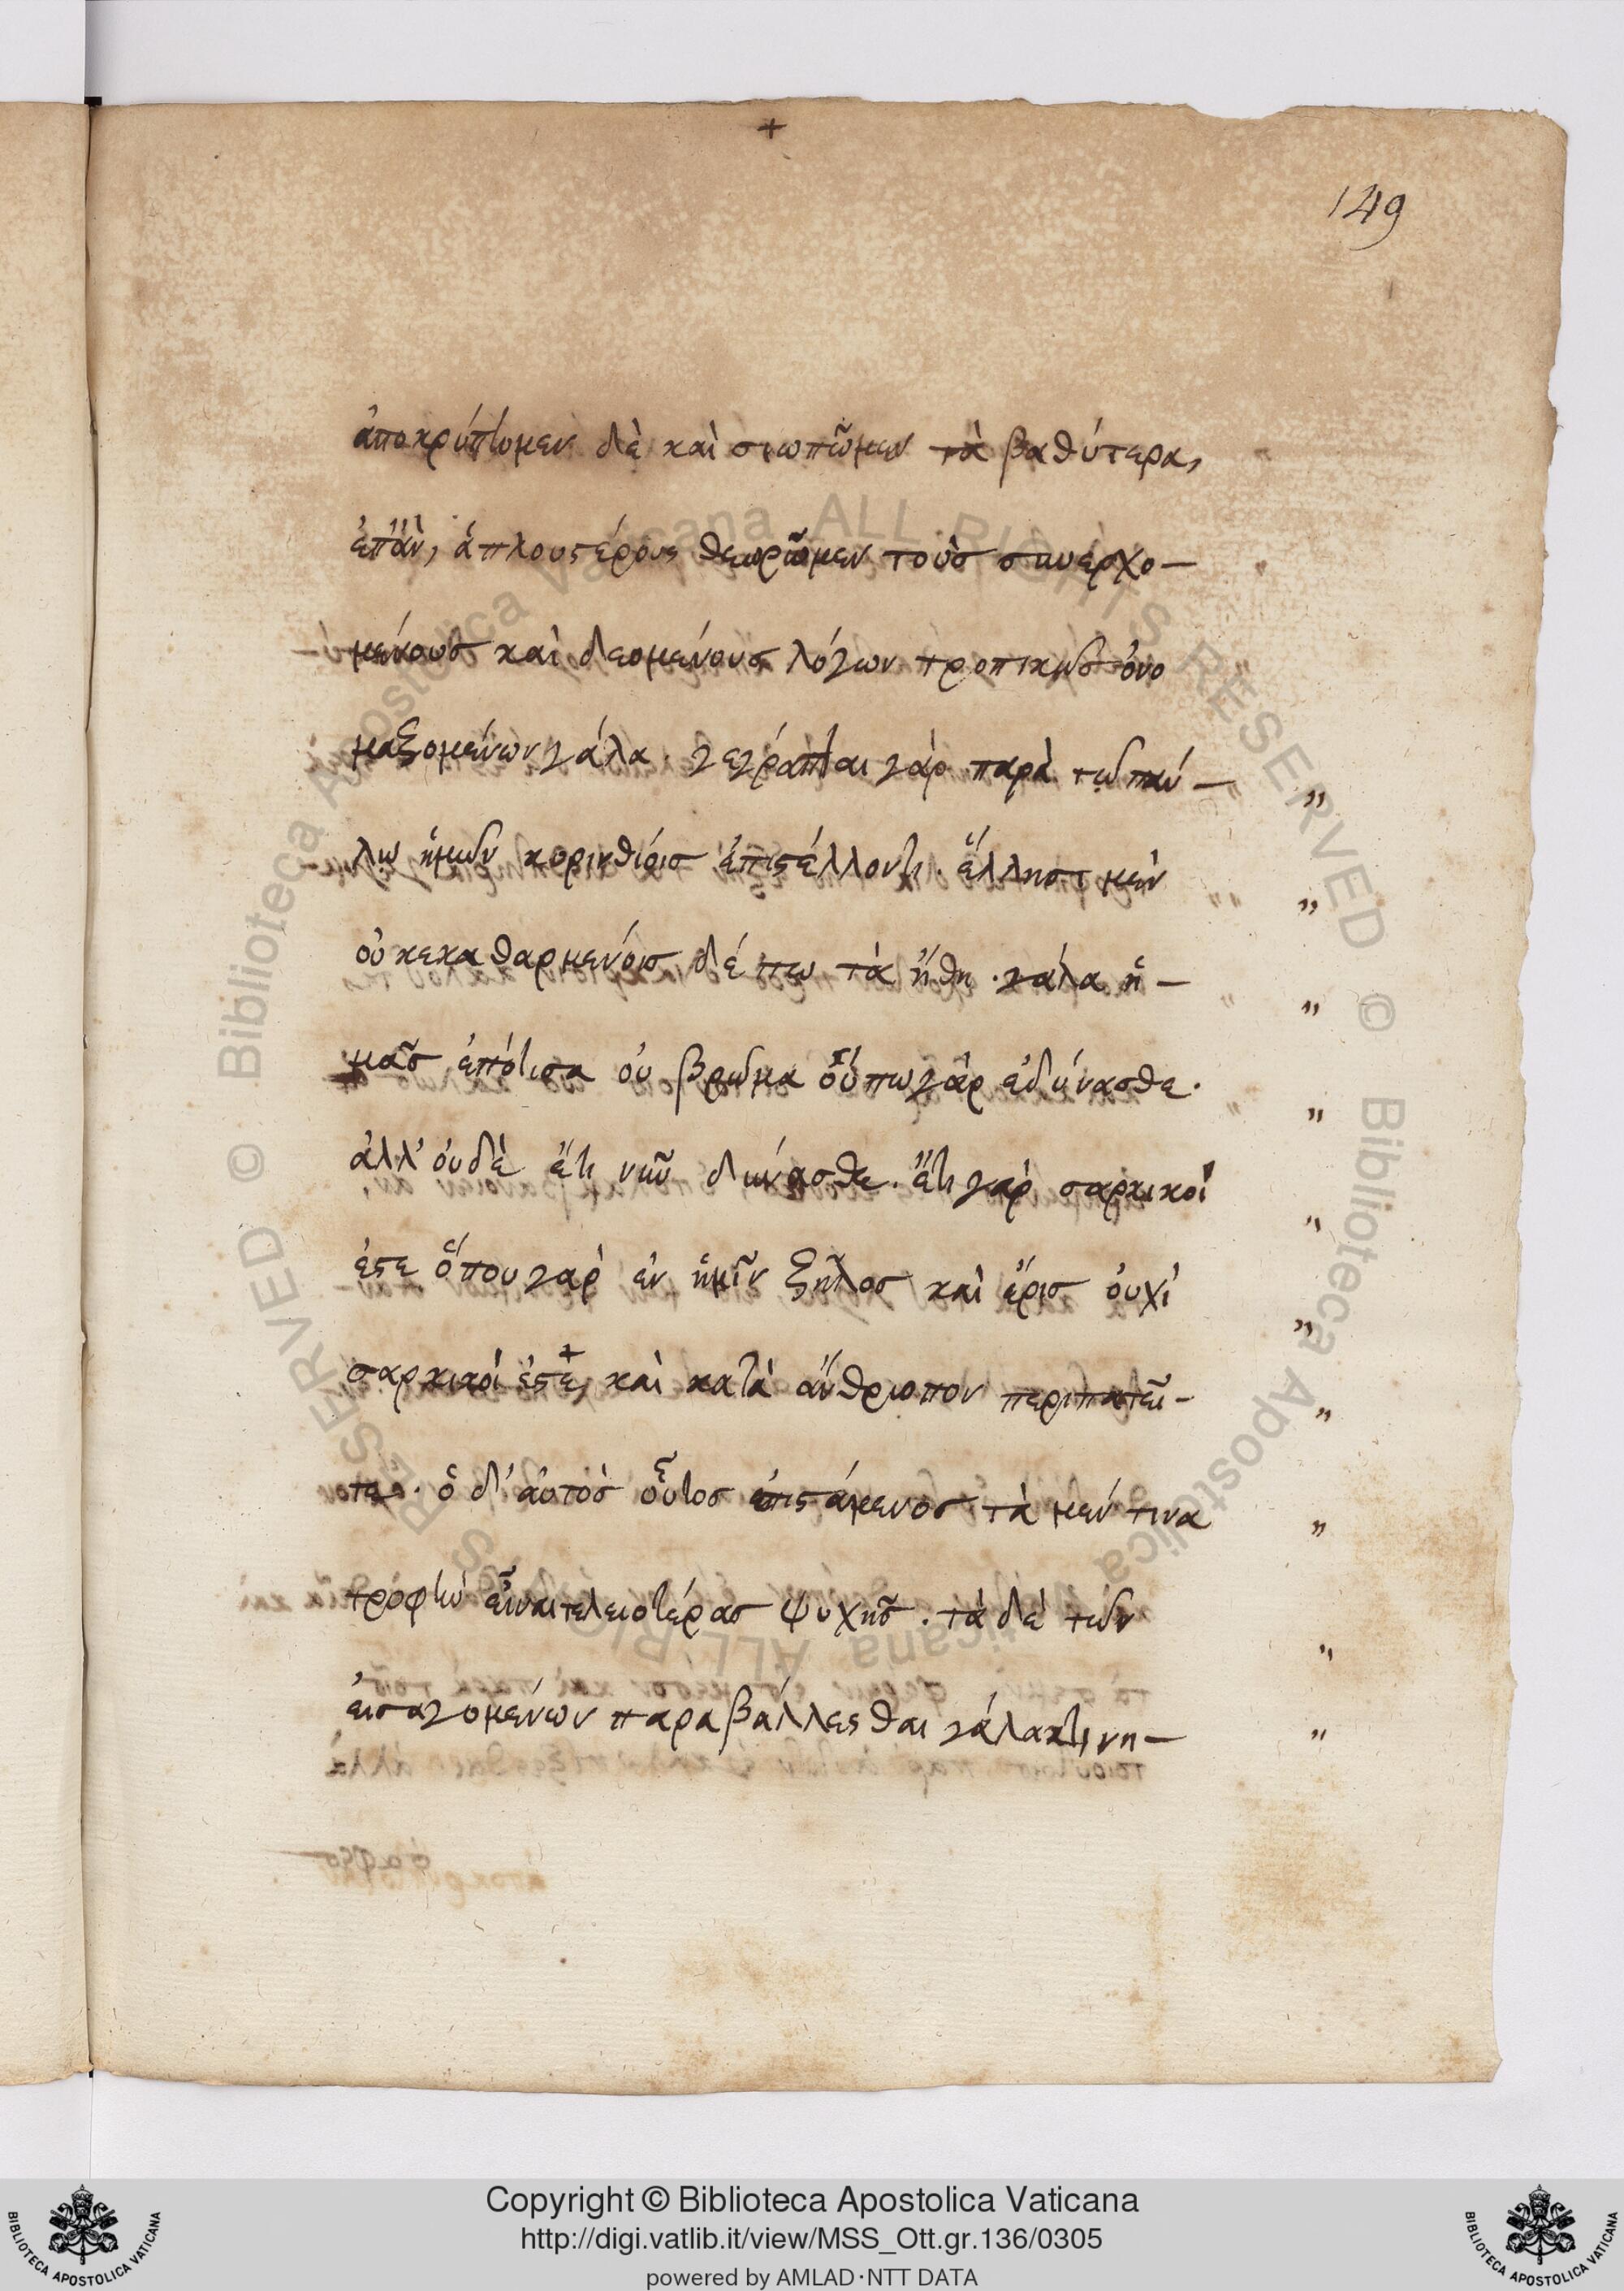 +
149
ἀποκρύπτομεν δὲ καὶ σιωπῶμεν τὰ βαθύτερα,
ἐπὰν, ἁπλουστέρους θεωρῶμεν τοὺσ συνερχο–
μένουσ καὶ δεομένουσ λόγων τροπικῶσ ὀνο
μαζομένων γάλα. γέγραπται γὰρ παρὰ τῷ παύ– „
λῳ ἡμῶν κορινθίοισ ἐπιστέλλοντι. ἕλλησι μὲν „
οὐ κεκαθαρμένοισ δέ πω τὰ ἤθη. γάλα ἡ– „
μᾶσ ἐπότισα οὐ βρῶμα οὔπω γὰρ ἐδύνασθε. „
ἀλλ' οὐδὲ ἔτι νῦν δύνασθε. ἔτι γὰρ σαρκικοί „
ἐστε ὅπου γὰρ ἐν ἡμῖν ζῆλοσ καὶ ἔρισ οὐχὶ „
σαρκικοί ἐστε, καὶ κατὰ ἄνθρωπον περιπατεῖ– „
τε. ὁ δ' αὐτὸσ οὗτοσ ἐπιστάμενοσ τὰ μέν τινα „
τροφὴν εἶναι τελειοτέρασ ψυχῆσ. τὰ δὲ τῶν „
εἰσαγομένων παραβάλλεσθαι γάλακτι νη– „
Copyright © Biblioteca Apostolica Vaticana
http://digi.vatlib.it/view/MSS_Ott.gr.136/0305
powered by AMLAD·NTT DATA
BIBLIOTECA APOSTOLICA VATICANA
BIBLIOTECA APOSTOLICA VATICANA
© Biblioteca Apostolica Vaticana ALL RIGHTS RESERVED © Biblioteca Apostolica Vaticana ALL RIGHTS RESERVED